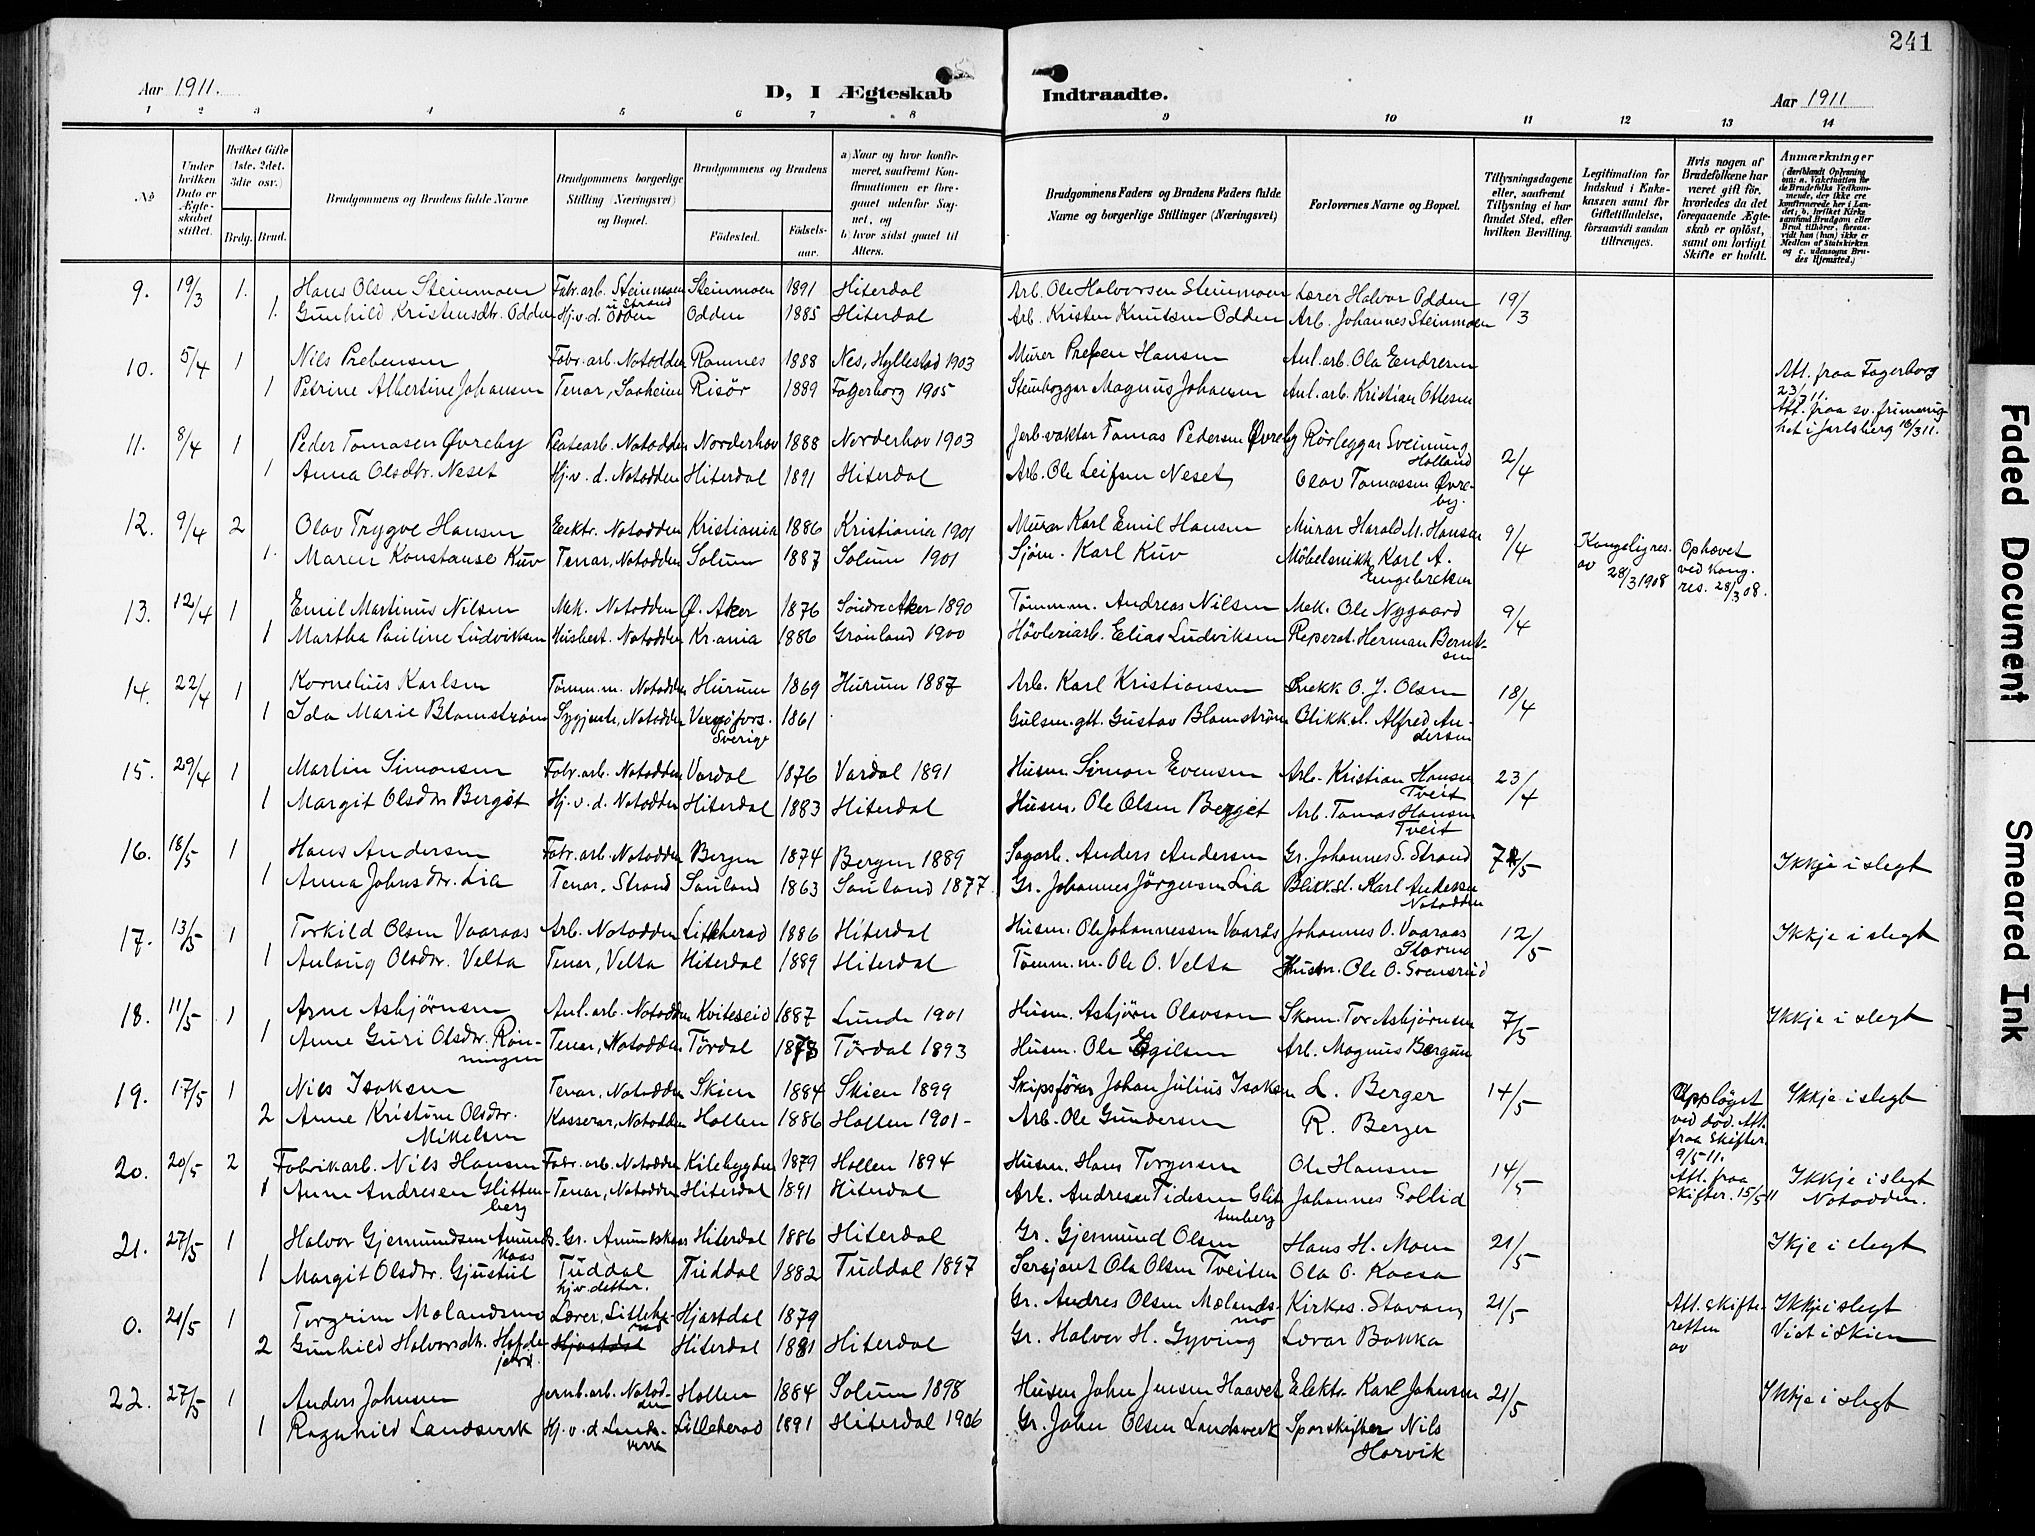 241
Aar 1911.
D, I Ægteskab Indtraadte.
Aar 1911
1 2 3 4 5 6 7 8 9 10 11 12 13 14
No
Under hvilken Dato er Ægteskabet stiftet.
Hvilket Gifte (1ste, 2det, 3die osv.)
Brdg. Brud.
Brudgommens og Brudens fulde Navne
Brudgommens borgerlige Stilling (Næringsvei) og Bopæl.
Brudgommens og Brudens
Fødested. Fødselsaar.
a) Naar og hvor konfirmeret, saafremt Konfirmationen er foregaaet udenfor Sognet, og b) hvor sidst gaaet til Alters.
Brudgommens Faders og Brudens Faders fulde Navne og borgerlige Stillinger (Næringsvei)
Forlovernes Navne og Bopæl.
Tillysningsdagene eller, saafremt Tillysning ei har fundet Sted, efter hvilken Bevilling.
Legitimation for Indskud i Enkekassen samt for Giftetilladelse, forsaavidt saadan tiltrænges.
Hvis nogen af Brudefolkene har været gift før, hvorledes da det foregaaende Ægteskab er opløst, samt om lovligt Skifte er holdt.
Anmærkninger
9. 19/3 1. Hans Olsen Steinmoen Fabr.arb. Steinmoen i Strand Steinmoen 1891 Hiterdal Arb. Ole Halvorsen Steinmoen Lærer Halvor Odden 19/3
1. Gunhild Kristensdtr. Odden Hj.v.d. Odden Odden 1885 Hiterdal Arb. Kristen Knutsen Odden Arb. Johannes Steinmoen
10. 5/4 1 Nils Prebensen Fabr.arb. Notodden Ramnes 1888 Nes, Hyllestad 1903 Murer Preben Hansen Anl.arb. Ola Endresen
1 Petrine Albertine Johansen Tenar, Saaheim Risör 1889 Fagerborg 1905 Steinhoggar Magnus Johansen Anl.arb. Kristian Ottesen Att. fraa Fagerborg 23/3 11.
Att. fraa sv. frimenighet i Jarlsberg 18/3 11.
11. 8/4 1 Peder Tomasen Øvreby Notodden Norderhov 1888 Norderhov 1903 Jerb.vaktar Tomas Pedersen Øvreby Rörleggar Sveinung Holland 2/4
1 Anna Olsdtr. Neset Hj.v.d. Notodden Hiterdal 1891 Hiterdal Arb. Ole Leifsen Neset Olav Tomassen Øvreby.
12. 9/4 2 Olav Trygve Hansen Elektr. Notodden Kristiania 1886 Kristiania 1901 Murar Karl Emil Hansen Murar Harald M. Hansen 9/4 Kongelig res. av 28/3 1908 Ophøvet ved kong. res. 28/3 08.
1. Maren Konstanse Kuv Tenar, Notodden Solum 1887 Solum 1901 Sjøm. Karl Kuv Möbelsnikk. Karl A. Engebretsen
13. 12/4 1 Emil Martinus Nilsen Mek. Notodden Ø. Aker 1876 Söndre Aker 1890 Tömm.m. Andreas Nilsen Mek. Ole Nygaard 9/4
1 Martha Pauline Ludviksen Husbest. Notodden Kr.ania 1886 Grönland 1900 Hövleriarb. Elias Ludviksen Reperat. Herman Berntsen
14. 22/4 1 Kornelius Karlsen Tömm.m. Notodden Hurum 1869 Hurum 1887 Arb. Karl Kristiansen Snekk. O. J. Olsen 18/4
1 Ida Marie Blomström Sygjente, Notodden Sverige 1861 Gulsm. Gustav Blomström Blikksl. Alfred Andersen
15. 29/4 1 Martin Simonsen Fabr.arb. Notodden Vardal 1876 Vardal 1891 Husm. Simon Evensen Arb. Kristian Hansen Tveit 23/4
1 Margit Olsdtr. Berget Hj.v.d. Notodden Hiterdal 1883 Hiterdal Husm. Ole Olsen Berget Arb. Tomas Hansen Tveit
16. 18/5 1 Hans Andersen Fabr.arb. Notodden Bergen 1874 Bergen 1889 Sagarb. Anders Andersen Gr. Johannes S. Strand 7/5 Ikkje i slegt
1 Anna Johnsdtr. Lia Tenar, Strand Sauland 1863 Sauland 1877. Gr. Johannes Jörgensen Lia Blikksl. Karl Andersen Notodden
17. 13/5 1 Torkild Olsen Vaaraas Arb. Notodden Litleherad 1886 Hiterdal Husm. Ole Johannessen Vaarås Johannes O. Vaaraas 12/5 Ikkje i slegt
1 Aslaug Olsdtr. Velta Tenar, Velta Hiterdal 1889 Hiterdal Tömm.m. Ole O. Velta Husm. Ole O. Svensrud
18. 11/5 1 Arne Asbjörnsen Anl.arb. Notodden Kviteseid 1887 Lunde 1901 Husm. Asbjörn Olavson Skom. Tor Asbjörnsen 7/5 Ikkje i slegt
1 Anne Guri Olsdtr. Rönningen Tenar, Notodden Tördal 1878 Tördal 1893 Husm. Ole Egilsen Arb. Magnus Bergun
19. 17/5 1 Nils Isaksen Tenar, Notodden Skien 1884 Skien 1899 Skipsförar Johan Julius Isaksen L. Berger 14/5 Upplöyst ved död. Att. fraa skifter. 9/5-11. Ikkje i slegt
2 Anne Kristine Olsdtr. Mikelsen Kasserar, Notodden Hollen 1886 Hollen 1901- Arb. Ole Gundersen R. Berger
20. 20/5 2 Fabrikarb. Nils Hansen Fabr.arb. Notodden Kilebygden 1879 Hollen 1894 Husm. Hans Torgersen Ole Hansen 14/5 Att. fraa skifter. 15/5 11 Ikkje i slegt Notodden.
1 Anne Andresen Glittenberg Tenar, Notodden Hiterdal 1891 Hiterdal Arb. Andreas Tidesen Glittenberg Johannes Sollid
21. 27/5 1 Halvor Gjermundsen Amunds- Gr. Hiterdal 1886 Hiterdal Gr. Gjermund Olsen Hans H. Moen 21/5 Ikje i slegt
1 Margit Olsdtr. Gjustul Tuddal hj.v. detter. Tuddal 1882 Tuddal 1897 Sersjant Ola Olsen Tveiten Ola O. Kaasa
0. 21/5 1 Torgrim Mælandsmo Lærer, Litleherad Hjartdal 1879 Gr. Andres Olsen Mælandsmo Kirkes. Stavang 21/5 Att. skifteretten av Ikkje i slegt Viet i Skien
2 Gunhild Halvorsdtr. Hjartdal Hiterdal 1881 Hiterdal Gr. Halvor H. Gyving Lærar Bakka
22. 27/5 1 Anders Johnsen Jernb.arb. Notodden Hollen 1884 Solum 1898 Husm John Jensen Haavet Elektr. Karl Johnsen 21/5 Ikkje i slegt
1 Ragnhild Landsverk Hj.v.d Landsverk Lilleherad 1891 Hiterdal 1906 Gr. John Olsen Landsverk Sporskifter Nils Horvik
Faded Document
Smeared Ink